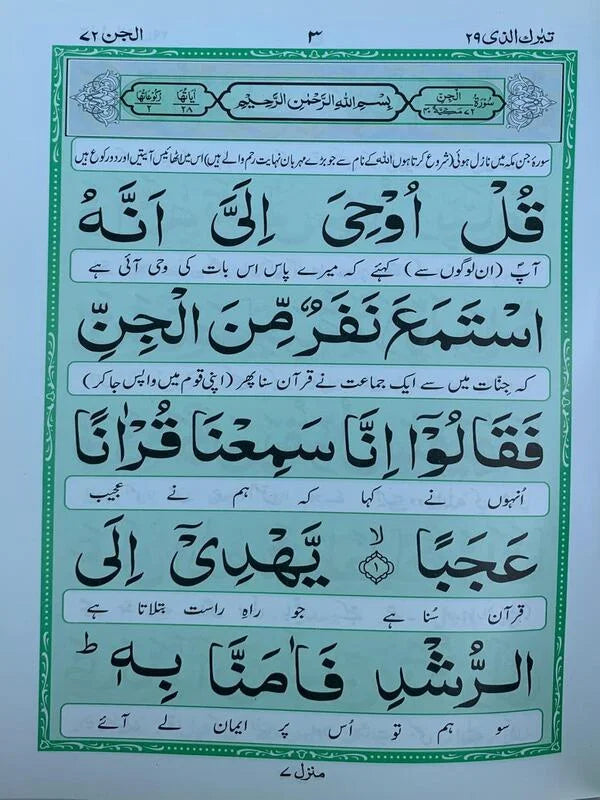 تبرك الذى ٢٩ ٣ الجن ٧٢
سُوْرَةُ الْجِنِّ ٧٢ مَكِّيَّةٌ ٤٠ بِسْمِ اللهِ الرَّحْمٰنِ الرَّحِيْمِ اٰيَاتُهَا ٢٨ رُكُوْعَاتُهَا ٢
سورۂ جن مکہ میں نازل ہوئی (شروع کرتا ہوں اللہ کے نام سے جو بڑے مہربان نہایت رحم والے ہیں) اس میں اٹھائیس آیتیں اور دو رکوع ہیں
قُلْ اُوْحِىَ اِلَىَّ اَنَّهُ
آپؐ (ان لوگوں سے) کہئے کہ میرے پاس اس بات کی وحی آئی ہے
اسْتَمَعَ نَفَرٌ مِّنَ الْجِنِّ
کہ جنّات میں سے ایک جماعت نے قرآن سنا پھر (اپنی قوم میں واپس جا کر)
فَقَالُوْٓا اِنَّا سَمِعْنَا قُرْاٰنًا
اُنہوں نے کہا کہ ہم نے عجیب
عَجَبًا ۙ‏﴿۱﴾ يَّهْدِىْٓ اِلَى
قرآن سُنا ہے جو راہِ راست بتلاتا ہے
الرُّشْدِ فَاٰمَنَّا بِهٖ ؕ
سو ہم تو اُس پر ایمان لے آئے
منزل ٧